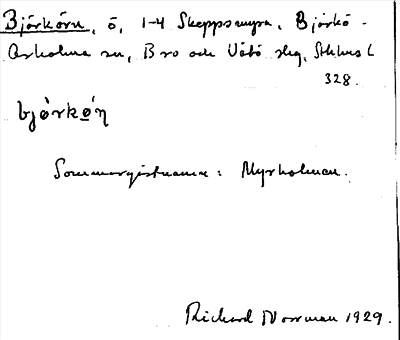 Björkörn, ö, 1-4 Skeppsmyra, Björkö-
Arholma sn, Bro och Vätö skg, Sthlms l
328.
bjørkø̀ń
Sommargästnamn: Myrholmen.
Richard Norrman 1929.